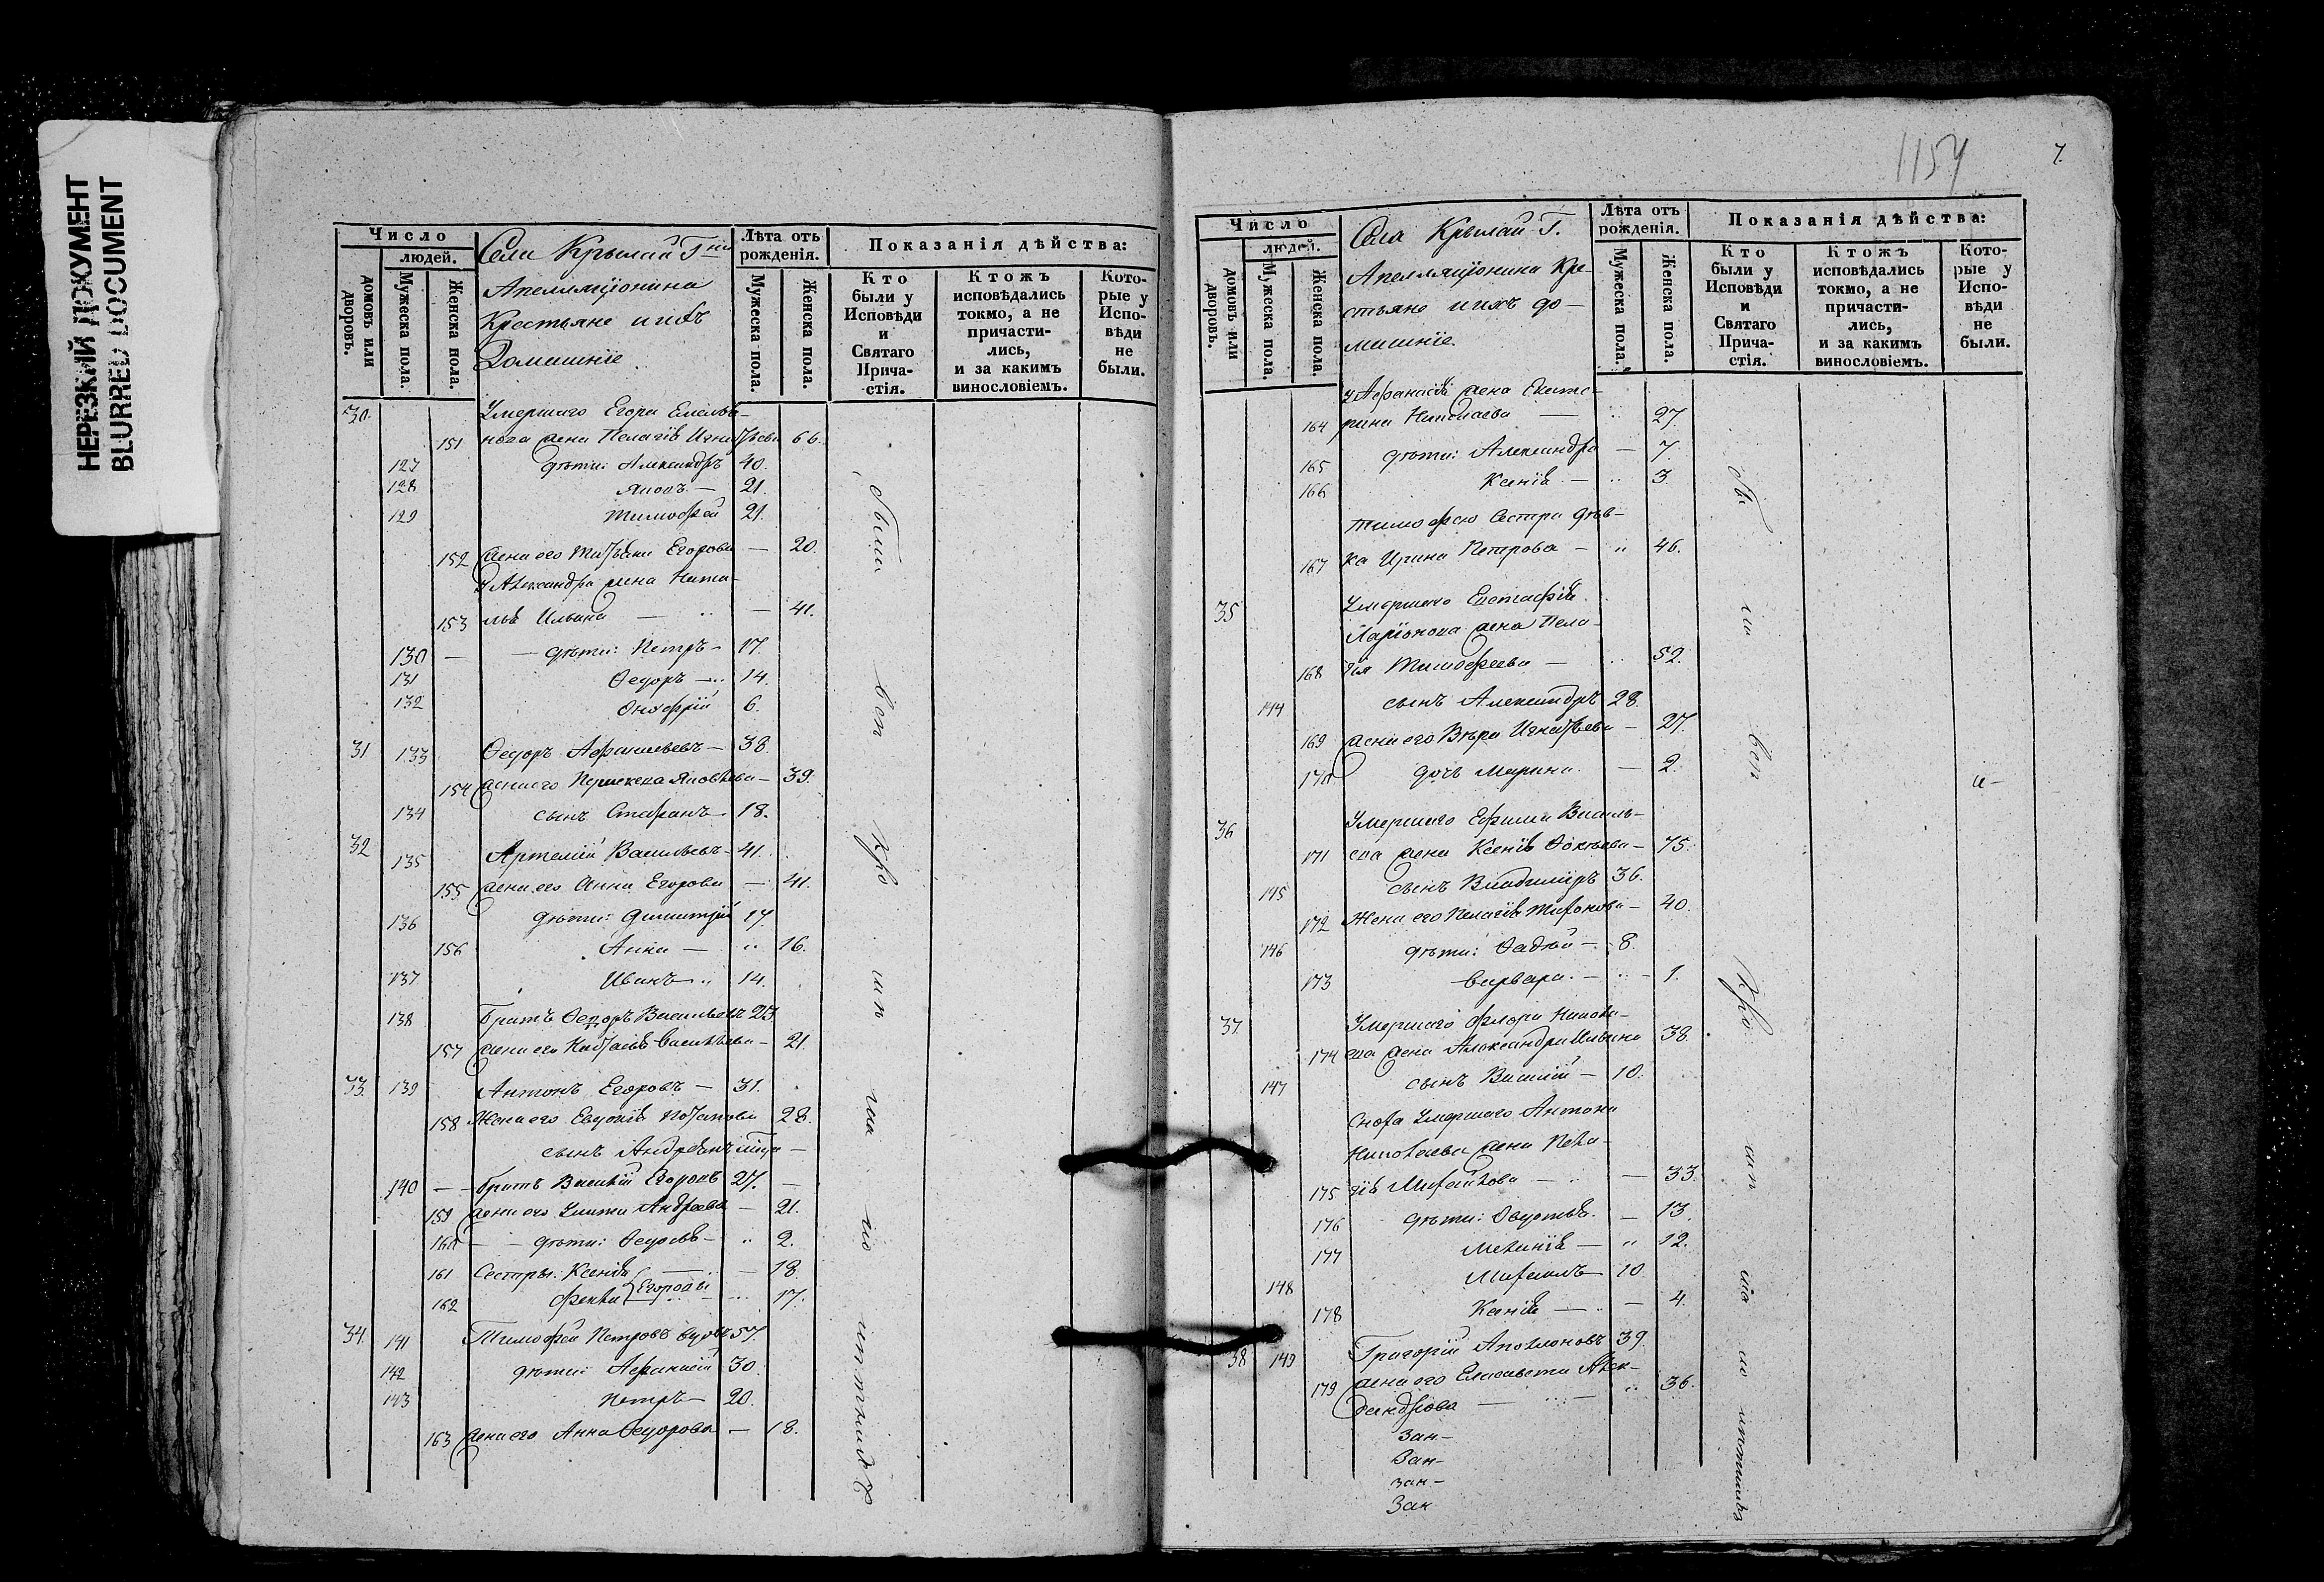 НЕРЕЗКИЙ ДОКУМЕНТ
BLURRED DOCUMENT
Число
людей.
домовъ или дворовъ.
Мужеска пола.
Женска пола.
Села Крылай Гна
Апелляціонина
Крестьяне и ихъ
Домашніе
Лѣта отъ рожденія.
Мужеска пола.
Женска пола.
Показанія дѣйства:
Кто были у Исповѣди и Святаго Прича- стія.
Ктожъ исповѣдались токмо, а не причасти- лись, и за какимъ винословіемъ.
Кото- рые у Испо- вѣди не были.
30 Умершаго Егора Емелья-
151 нова жена Пелагія Игнатьева 66.
127 дѣти: Александръ 40.
128 Яковъ — 21.
129 Тимофей 21.
152 жена его Татьяна Егорова — 20.
У Александра жена Ната-
153 лья Ильина — 41.
130 — дѣти: Петръ — 17.
131 Ѳедоръ — 14.
132 Онуфрій 6.
31 133 Ѳедоръ Афанасьевъ — 38
154 жена его Яковлева — 39.
134 сынъ Стефанъ 18.
32 135 Артемій Васильевъ — 41.
155 жена его Анна Егорова — 41.
136 дѣти: Димитрій 17.
156 Анна — 16.
137 Иванъ 14.
138 Братъ Ѳедоръ Васильевъ 23
157 жена его Наталья Васильева — 21.
33. 139 Антонъ Егоровъ — 31.
158 Жена его Евдокія Потапова 28.
сынъ Андреянъ —
140 — братъ Василій Егоровъ 27. —
159 жена его Улита Андреева — 21.
160 — — дѣти: Ѳедосья — 2.
161 Сестры: Ксенія — 18.
162 Фекла Егоровы 17.
34. 141 Тимофей Петровъ вдовъ 57.
142 дѣти: Афанасій 30.
143 Петръ — 20.
163 жена его Анна Ѳедорова — 18.
были
1154
7.
Число
людей.
домовъ или дворовъ.
Мужеска пола.
Женска пола.
Села Крылай Г.
Апелляціонина Кре-
стьяне и ихъ до-
машніе.
Лѣта отъ рожденія.
Мужеска пола.
Женска пола.
Показанія дѣйства:
Кто были у Исповѣди и Святаго Прича- стія.
Ктожъ исповѣдались токмо, а не причасти- лись, и за какимъ винословіемъ.
Кото- рые у Испо- вѣди не были.
У Афанасія жена Екате-
164 рина Николаева — 27.
165 дѣти: Александра — 7.
166 Ксенія — 3.
Тимофею Сестра дѣв-
167 ка Ирина Петрова — 46.
35 Умершаго Евстафія
Ларіонова жена Пела-
168 гія Тимофеева — 52.
144 сынъ Александръ 28.
169 жена его Вѣра Игнатьева — 27.
170 дочь Марина — 2.
36 Умершаго Ефима Василь-
171 ева жена Ксенія — 75.
145 сынъ Владиміръ 36.
172 Жена его Пелагія — 40.
146 дѣти: Ѳадѣй — 8.
173 Варвара. — 1.
37 Умершаго Флора Никола-
174 ева жена Александра Ильина 38.
147 сынъ Василій — 10.
Сноха Умершаго Антона
Николаева жена Пела-
175 гія Михайлова — 33.
176 дѣти: Ѳедотья — 13.
177 Меланія — 12.
148 Михаилъ 10
178 Ксенія — 4.
38 149 Григорій Аполлоновъ 39.
179 жена его Елисавета Алек-
сандрова — 36.
Зан-
Зан-
зан-
Зан